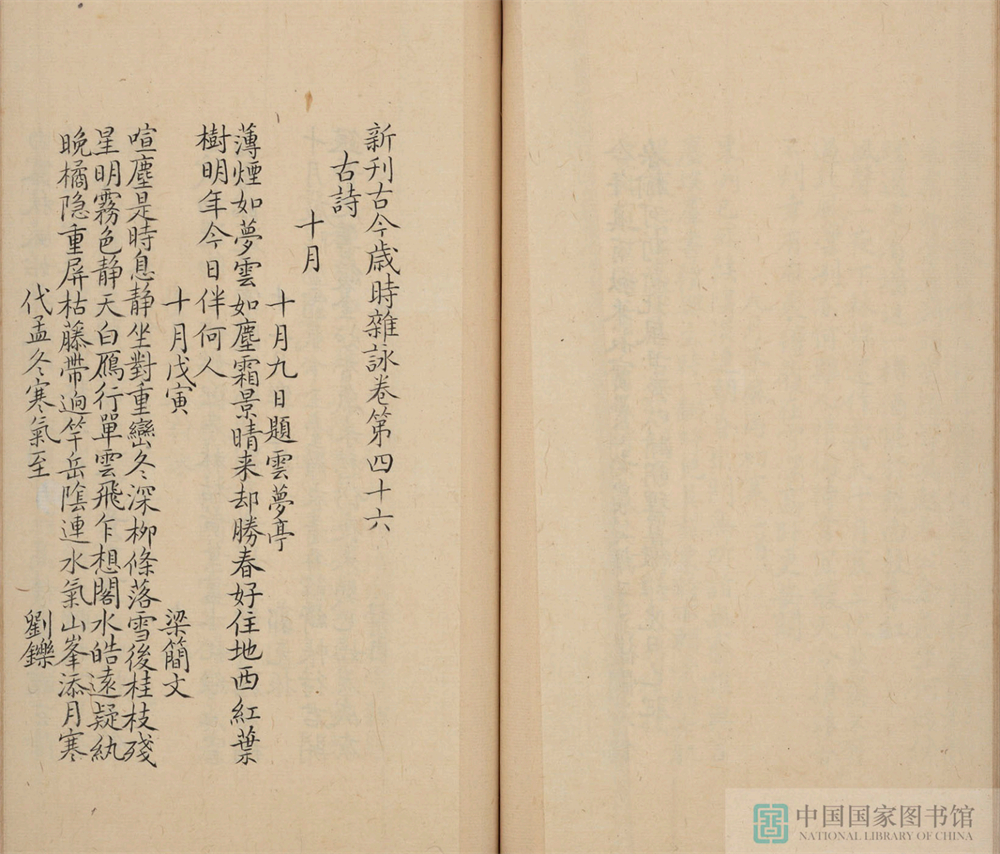 新刊古今歳時雜詠卷第四十六
古詩
十月
十月九日題雲夢亭
薄煙如夢雲如塵霜景晴来却勝春好住地西紅葉
樹明年今日伴何人
十月戊寅
梁簡文
喧塵是時息静坐對重巒冬深栁條落雪後桂枝殘
星明霧色静天白鴈行單雲飛乍想閣水皓遠疑紈
晚橘隐重屏枯藤帶迥竿岳陰連水氣山峯添月寒
代孟冬寒氣至
劉鑠
中国国家图书馆
NATIONAL LIBRARY OF CHINA